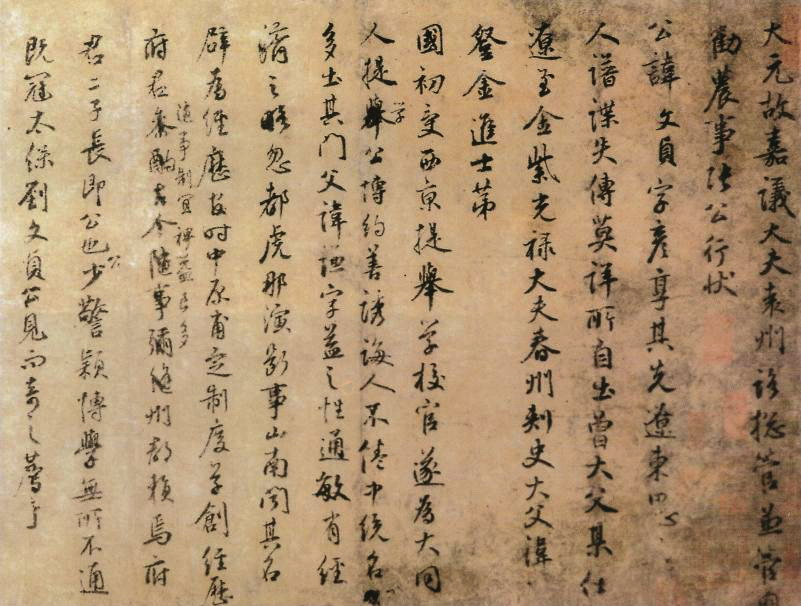 大元故嘉議大夫袁州路總管兼管內
勸農事張公行狀
公諱文貞字彥亨其先遼東
人譜諜失傳莫詳所自出曾大父某仕
遼至金紫光祿大夫春州刺史大父諱
登金進士第
國初受西京提舉學校官遂為大同
人提舉學公博約善誘誨人不倦中統名
多出其門父諱字益之性通敏有經
濟之略忽都虎那演斷事山南聞其名
辟為經歷於時中原甫定制度草創經歷
隨事制宜裨益良多
府君參酌古今隨事彌縫州郡賴焉府
君二子長即公也公少警穎博學無所不通
既冠太保劉文貞公見而奇之薦于